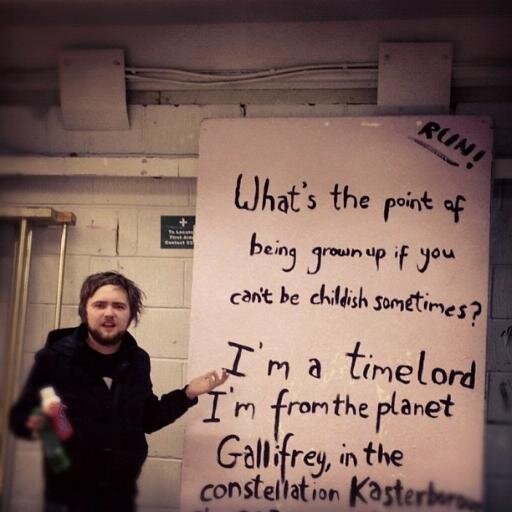 RUN!
What's the point of
being grownup if you
can't be childish sometimes?
I'm a timelord
I'm from the planet
Gallifrey, in the
constellation
To Locate
First Aider
Contact